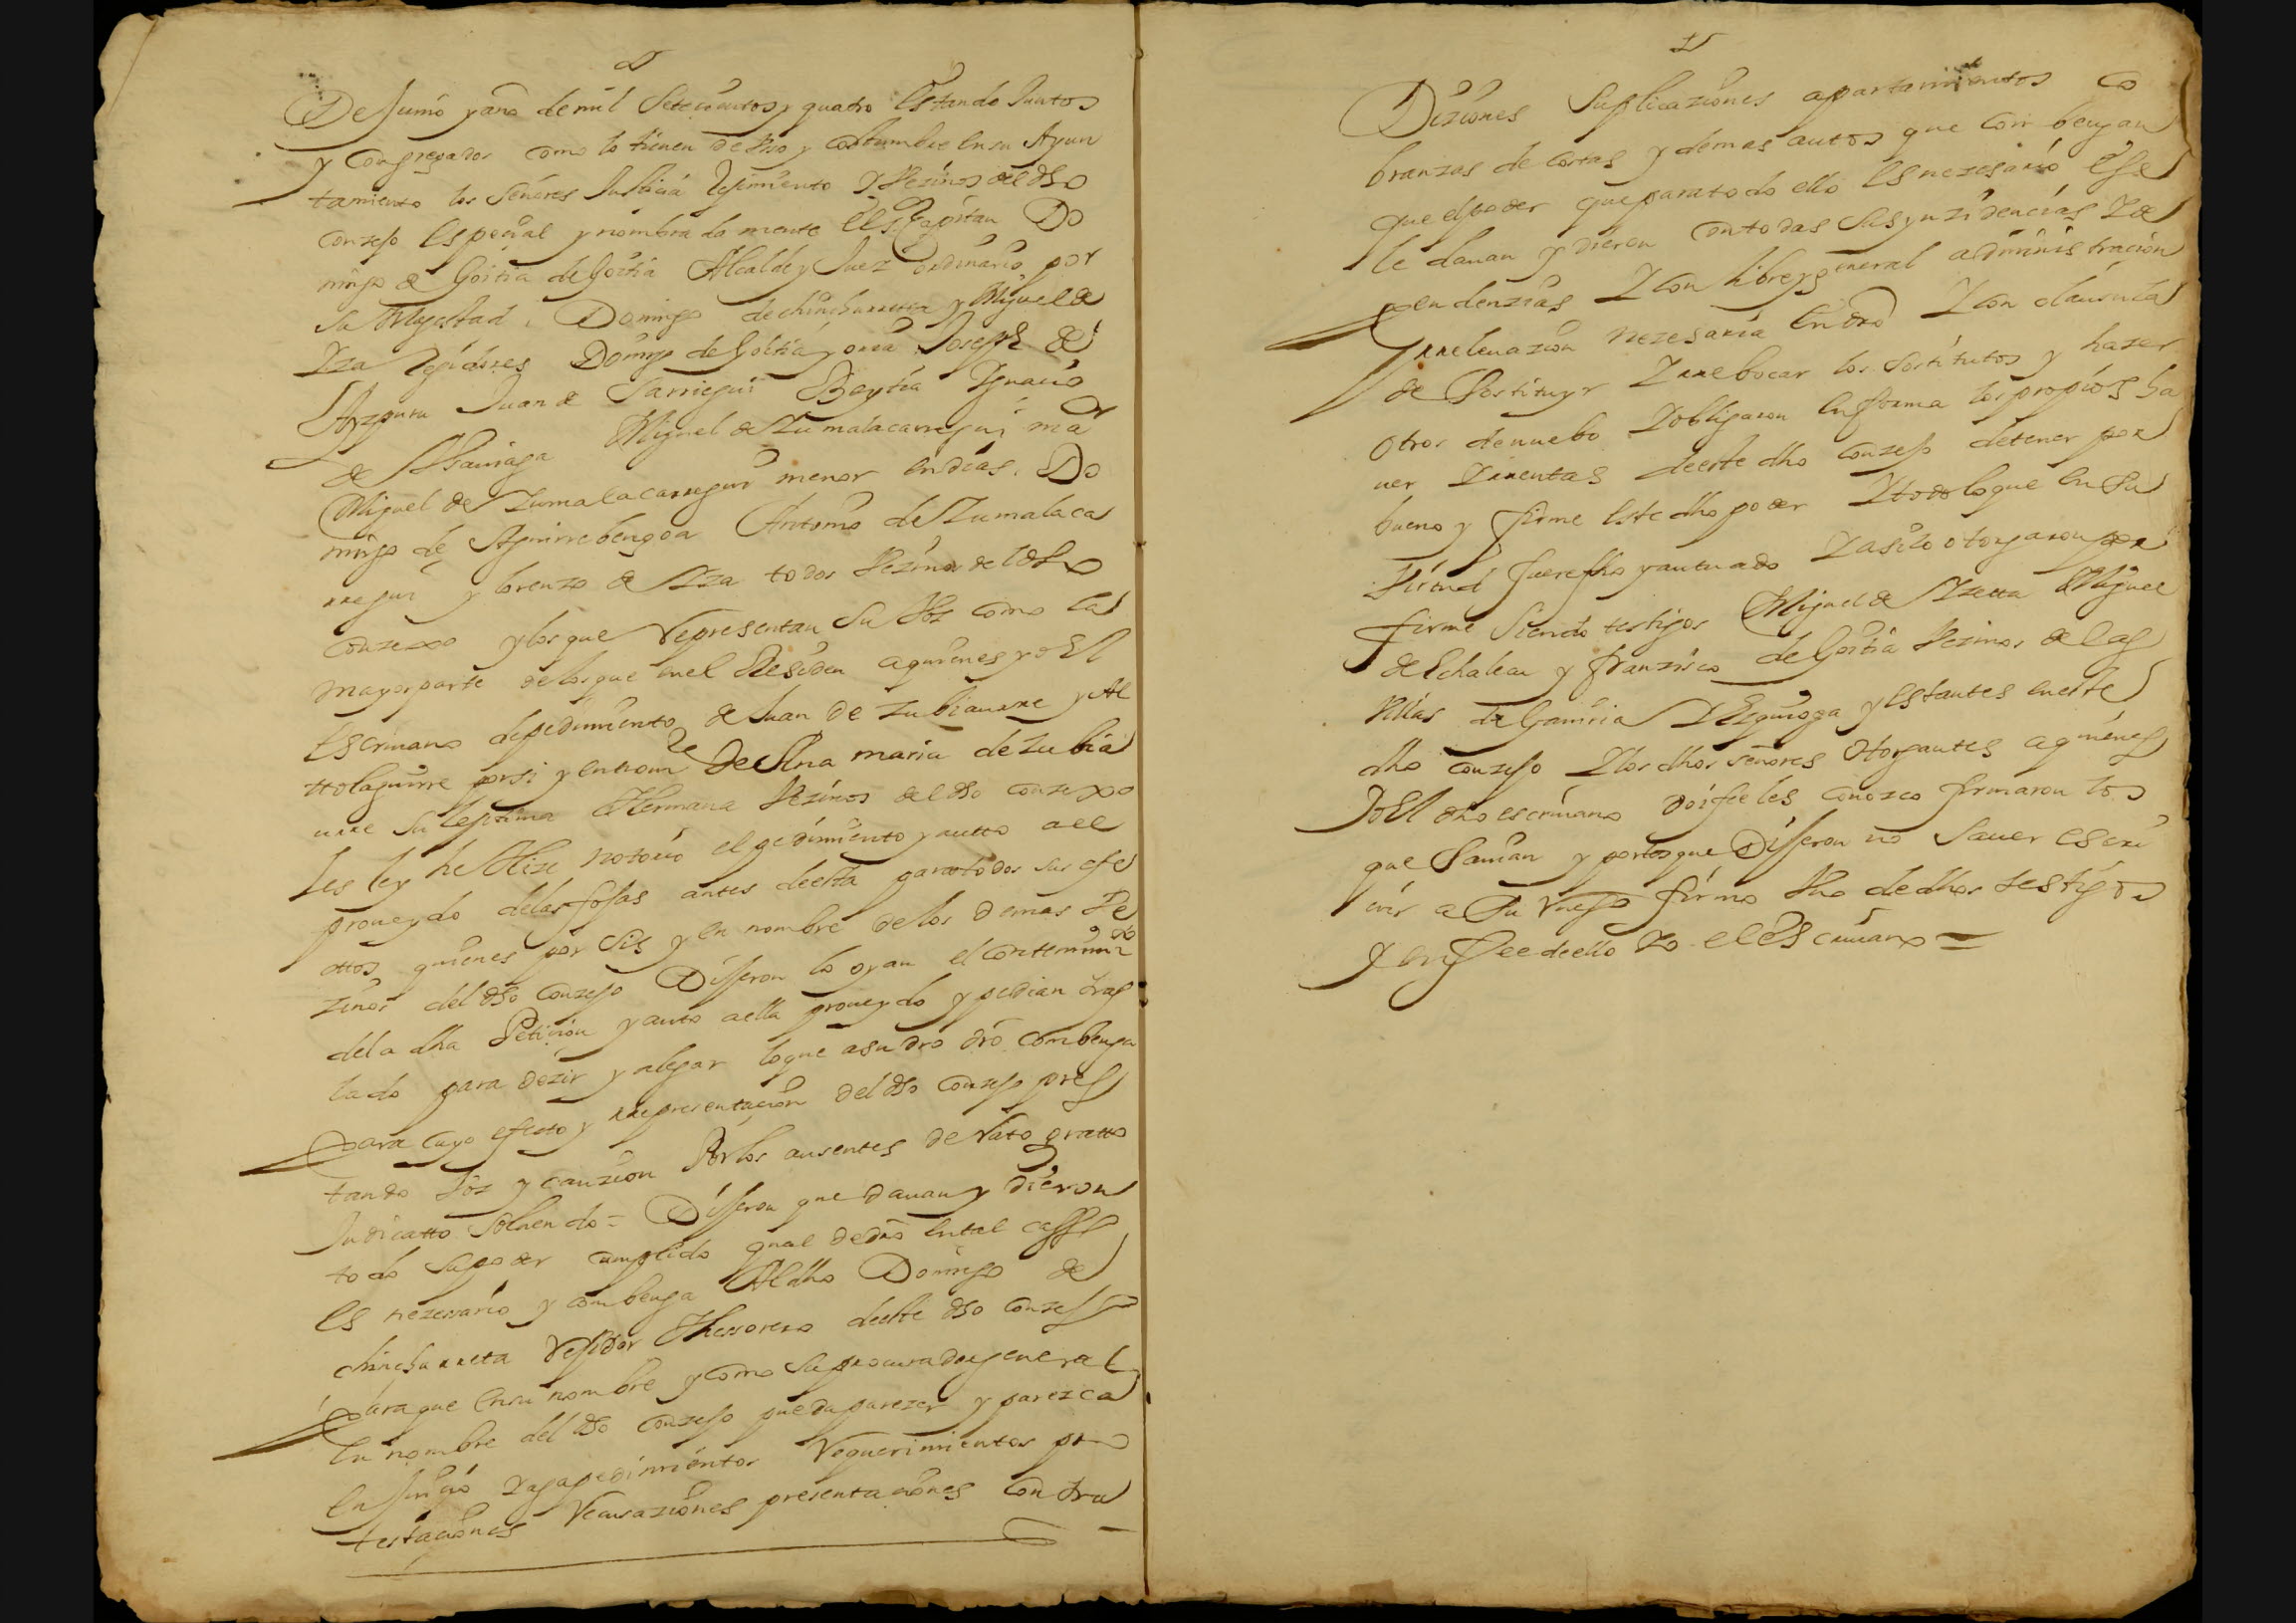 De Junio y año de mil Setecientos y quatro Estando Juntos
y Congregados como lo tienen de Vso y costumbre en su Ayun
tamiento los Señores Justicia Regimiento y Vezinos del dho
conzejo Especial y nombrada mente El Sr Capitan Do
mingo de Goitia de Goitia Alcalde y Juez ordinario por
su Magestad, Domingo de chinchurreta y Miguel de
Yza Regidores Domingo de Goitia y orra Joseph de
Azpuru Juan de Sarriegui Beytia Ygnacio
de Miguel de Zumalacarregui maor
Miguel de Zumalacarregui menor en dias, Do
mingo de Aguirrebengoa Antonio de Zumalaca
rregui y lorenzo de Yza todos Vezinos del dho
conzexo y los que Representan su Voz como la
mayor parte de los que en el Residen a quienes yo El
Escriuano de pedimiento de Juan de Zubiaurre y
por si y en nomre de Ana maria de Zubia
urre su lejitima Hermana Vezinos del dho conzexo
les ley he Hize notorio el pedimiento y autto a el
proueydo de las fojas antes de esta para todos sus efe
ttos quienes por Sis y en nombre de los demas Ve
zinos del dho conzejo Dijeron lo oyan el contenimdo
de la dha Petizion y auto a ella proueydo y pedian tras
lado para dezir y alegar lo que a su dro combenga
Para cuyo efecto y rrepresentazion del dho conzejo pres
tando Voz y cauzion Por los ausentes de Rato gratto
Judicatto Soluendo = Dijeron que dauan y dieron
todo su poder cumplido qual de dro en tal casso
Es nezesario y combenga Al dho Domingo de
chinchurreta Rejidor Thessorero de este dho conzejo
Para que en su nombre y como su procurador general
En nombre del dho conzejo pueda parezer y parezca
En Juizio y aga pedimientos Requerimientos pro
testaziones Recusaziones presentaziones contra
Diziones Suplicaziones apartamientos co
branzas de costas y demas autos que combengan
que el poder que para todo ello Es nezesario Ese
le dauan y dieron con todas sus ynzidencias y de
pendenzias y con libre y general administracion
y rrelevazion nezesaria en dro y con clausula
de Sostituyr y rrebocar los Sostitutos y hazer
otros de nuebo y obligaron en forma los propios ha
uer y rrentas de este dho conzejo de tener por
bueno y firme este dho poder y todo lo que en su
Virtud fuere fho y autuado y asi lo otorgaron por
firme Siendo testigos Miguel de Miguel
de Echaleco y franzisco de Goitia Vezinos de las
Villas de Gauiria y Ezquioga y estantes en este
dho conzejo y los dhos señores otorgantes a quienes
yo El dho escriuano doi fee les conozco firmaron los
que Sauian y por los que Dijeron no Sauer escri
uir a su ruego firmo Vno de dhos testigos
y en fee de ello yo el escriuano =